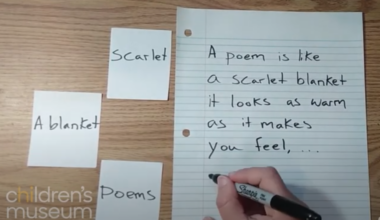 Scarlet
A blanket
Poems
A poem is like
a scarlet blanket
it looks as warm
as it makes
you feel, ...
Sharpie
children's
museum